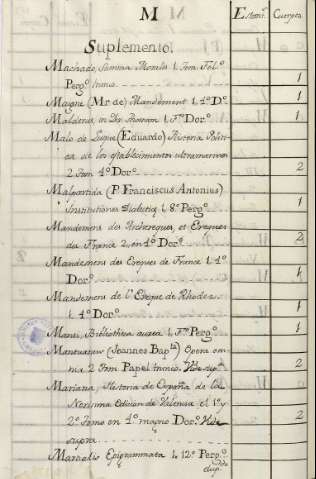 M
Estant.ˢ Cuerpos
Suplemento.
Machado, Summa Moralis 1. tom. Fol.º
Perg.º trunco. 1
Maigne (Mr de) Mandement 1. 4.º D.º 1
Maldonat. in 1. F.º Dor.º 1
Malo de Luque (Eduardo) Historia Polit
ca de los establecimientos ultramarinos
2. tom. 4.º Dor.º 2
Malpartida (P. Franciscus Antonius)
Institutiones Dialecticæ 1. 8.º Perg.º 1
Mandemens des Archeveques, et Eveques
de France 2. en 4.º Dor.º 2
Mandemens des Eveques de France 1. 4.º
Dor.º 1
Mandemens de l'Eveque de Rhodes
1. 4.º Dor.º 1
Mansi, Bibliotheca aurea 1. F.º Perg.º 1
Mantuanus (Joannes Bap.ta) Opera om
nia 2. tom. Papel trunco. 2
Mariana, Historia de España de la
Novisima Edicion de Valencia el 1.º y
2.º tomo en 4.º magno Dor.º Vide 2
supra
Marcelis Epigrammata 1. 12.º Perg.º
dup.